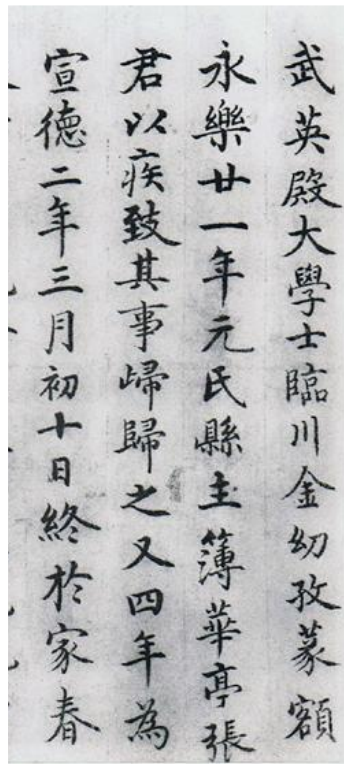 武英殿大學士臨川金幼孜篆額
永樂廿一年元氏縣主簿華亭張
君以疾致其事歸歸之又四年為
宣德二年三月初十日終於家春